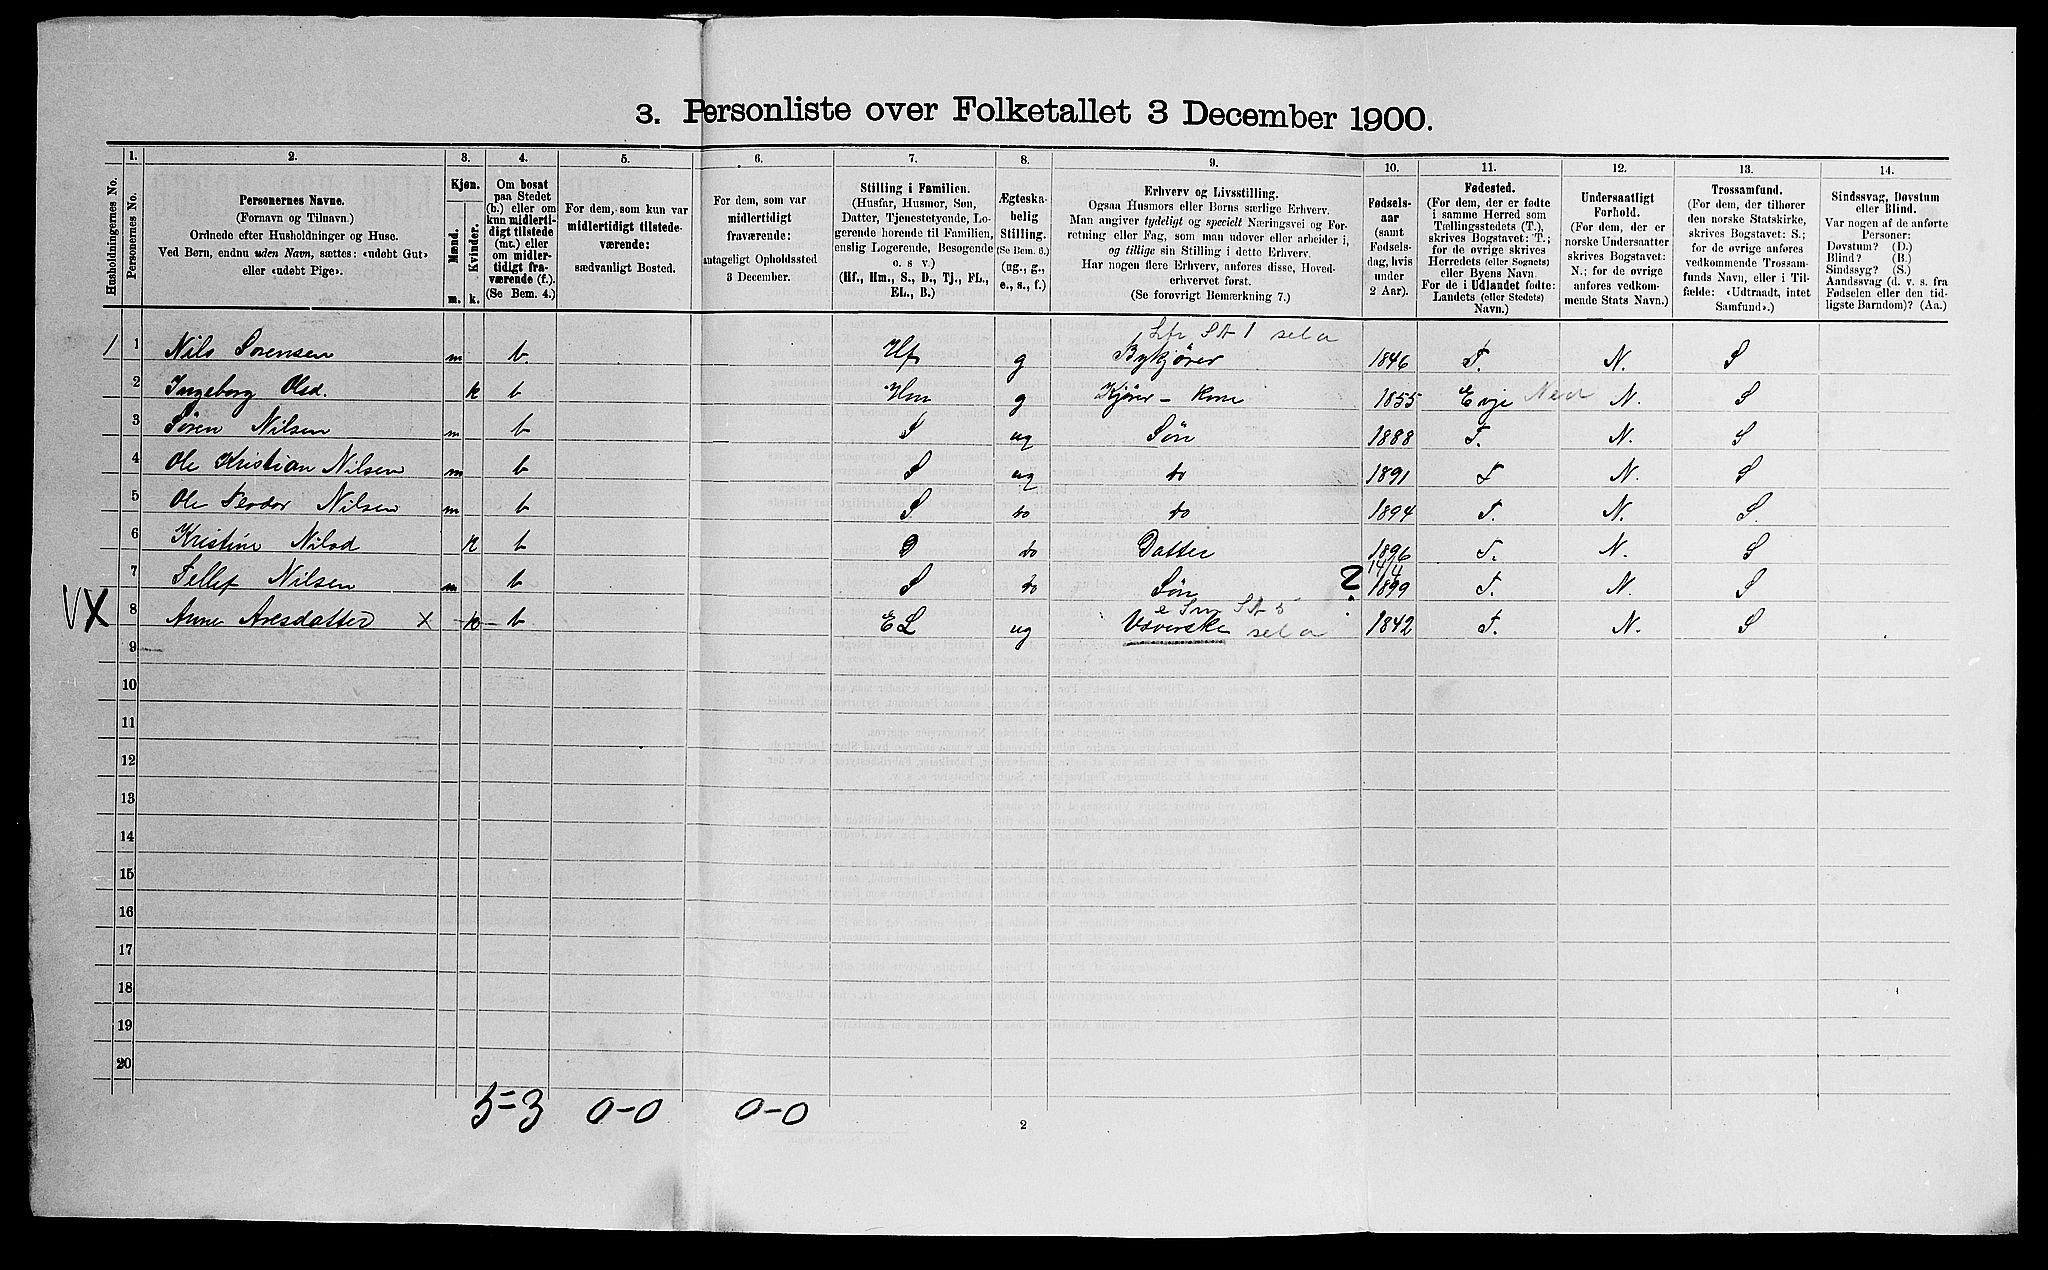 3. Personliste over Folketallet 3 December 1900.
Husholdningernes No.
1.
Personernes No.
2.
Personernes Navne.
(Fornavn og Tilnavn.)
Ordnede efter Husholdninger og Huse.
Ved Børn, endnu uden Navn, sættes: «udøbt Gut»
eller «udøbt Pige».
3.
Kjøn.
Mænd.
Kvinder.
m. k.
4.
Om bosat
paa Stedet
(b.) eller om
kun midlerti-
digt tilstede
(mt.) eller
om midler-
tidigt fra-
værende (f.).
(Se Bem. 4.)
5.
For dem, som kun var
midlertidigt tilstede-
værende:
sædvanligt Bosted.
6.
For dem, som var
midlertidigt
fraværende:
antageligt Opholdssted
3 December.
7.
Stilling i Familien.
(Husfar, Husmor, Søn,
Datter, Tjenestetyende, Lo-
gerende hørende til Familien,
enslig Logerende, Besøgende
o. s. v.)
(Hf., Hm., S., D., Tj., FL.,
EL., B.)
8.
Ægteska-
belig
Stilling.
(Se Bem. 6.)
(ug., g.,
e., s., f.)
9.
Erhverv og Livsstilling.
Ogsaa Husmors eller Børns særlige Erhverv.
Man angiver tydeligt og specielt Næringsvei og For-
retning eller Fag, som man udøver eller arbeider i,
og tillige sin Stilling i dette Erhverv.
Har nogen flere Erhverv, anføres disse, Hoved-
erhvervet først.
(Se forøvrigt Bemærkning 7.)
10.
Fødsels-
aar
(samt
Fødsels-
dag, hvis
under
2 Aar).
11.
Fødested.
(For dem, der er fødte
i samme Herred som
Tællingsstedets (T.),
skrives Bogstavet: T.;
for de øvrige skrives
Herredets (eller Sognets)
eller Byens Navn.
For de i Udlandet fødte:
Landets (eller Stedets)
Navn.)
12.
Undersaatligt
Forhold.
(For dem, der er
norske Undersaatter
skrives Bogstavet:
N.; for de øvrige
anføres vedkom-
mende Stats Navn.)
13.
Trossamfund.
(For dem, der tilhører
den norske Statskirke,
skrives Bogstavet: S.;
for de øvrige anføres
vedkommende Trossam-
funds Navn, eller i Til-
fælde: «Udtraadt, intet
Samfund».)
14.
Sindssvag, Døvstum
eller Blind.
Var nogen af de anførte
Personer:
Døvstum? (D.)
Blind? (B.)
Sindssyg? (S.)
Aandssvag (d. v. s. fra
Fødselen eller den tid-
ligste Barndom)? (Aa.)
1 1 Nils Sørensen m b. Hf g Bykjører 1846 T. N. S
2 Ingeborg Olsd. k b Hm g Kjører - Kone 1855 Evje Ned N. S
3 Søren Nilsen m b S ug Søn 1888 T. N. S
4 Ole Kristian Nilsen m b S ug do 1891 T N. S
5 Ole Teodor Nilsen m b S. do do 1894 T. N. S.
6 Kristine Nilsd k b D do Datter 1896 T. N. S
14/4
7 Tellef Nilsen m b S do Søn 2 1899 T. N. S
VX 8 Anne Aresdatter X k b EL ug Væverske sel a 1842 T. N. S
9
10
11
12
13
14
15
16
17
18
19
20
5=3 0-0 0-0
2